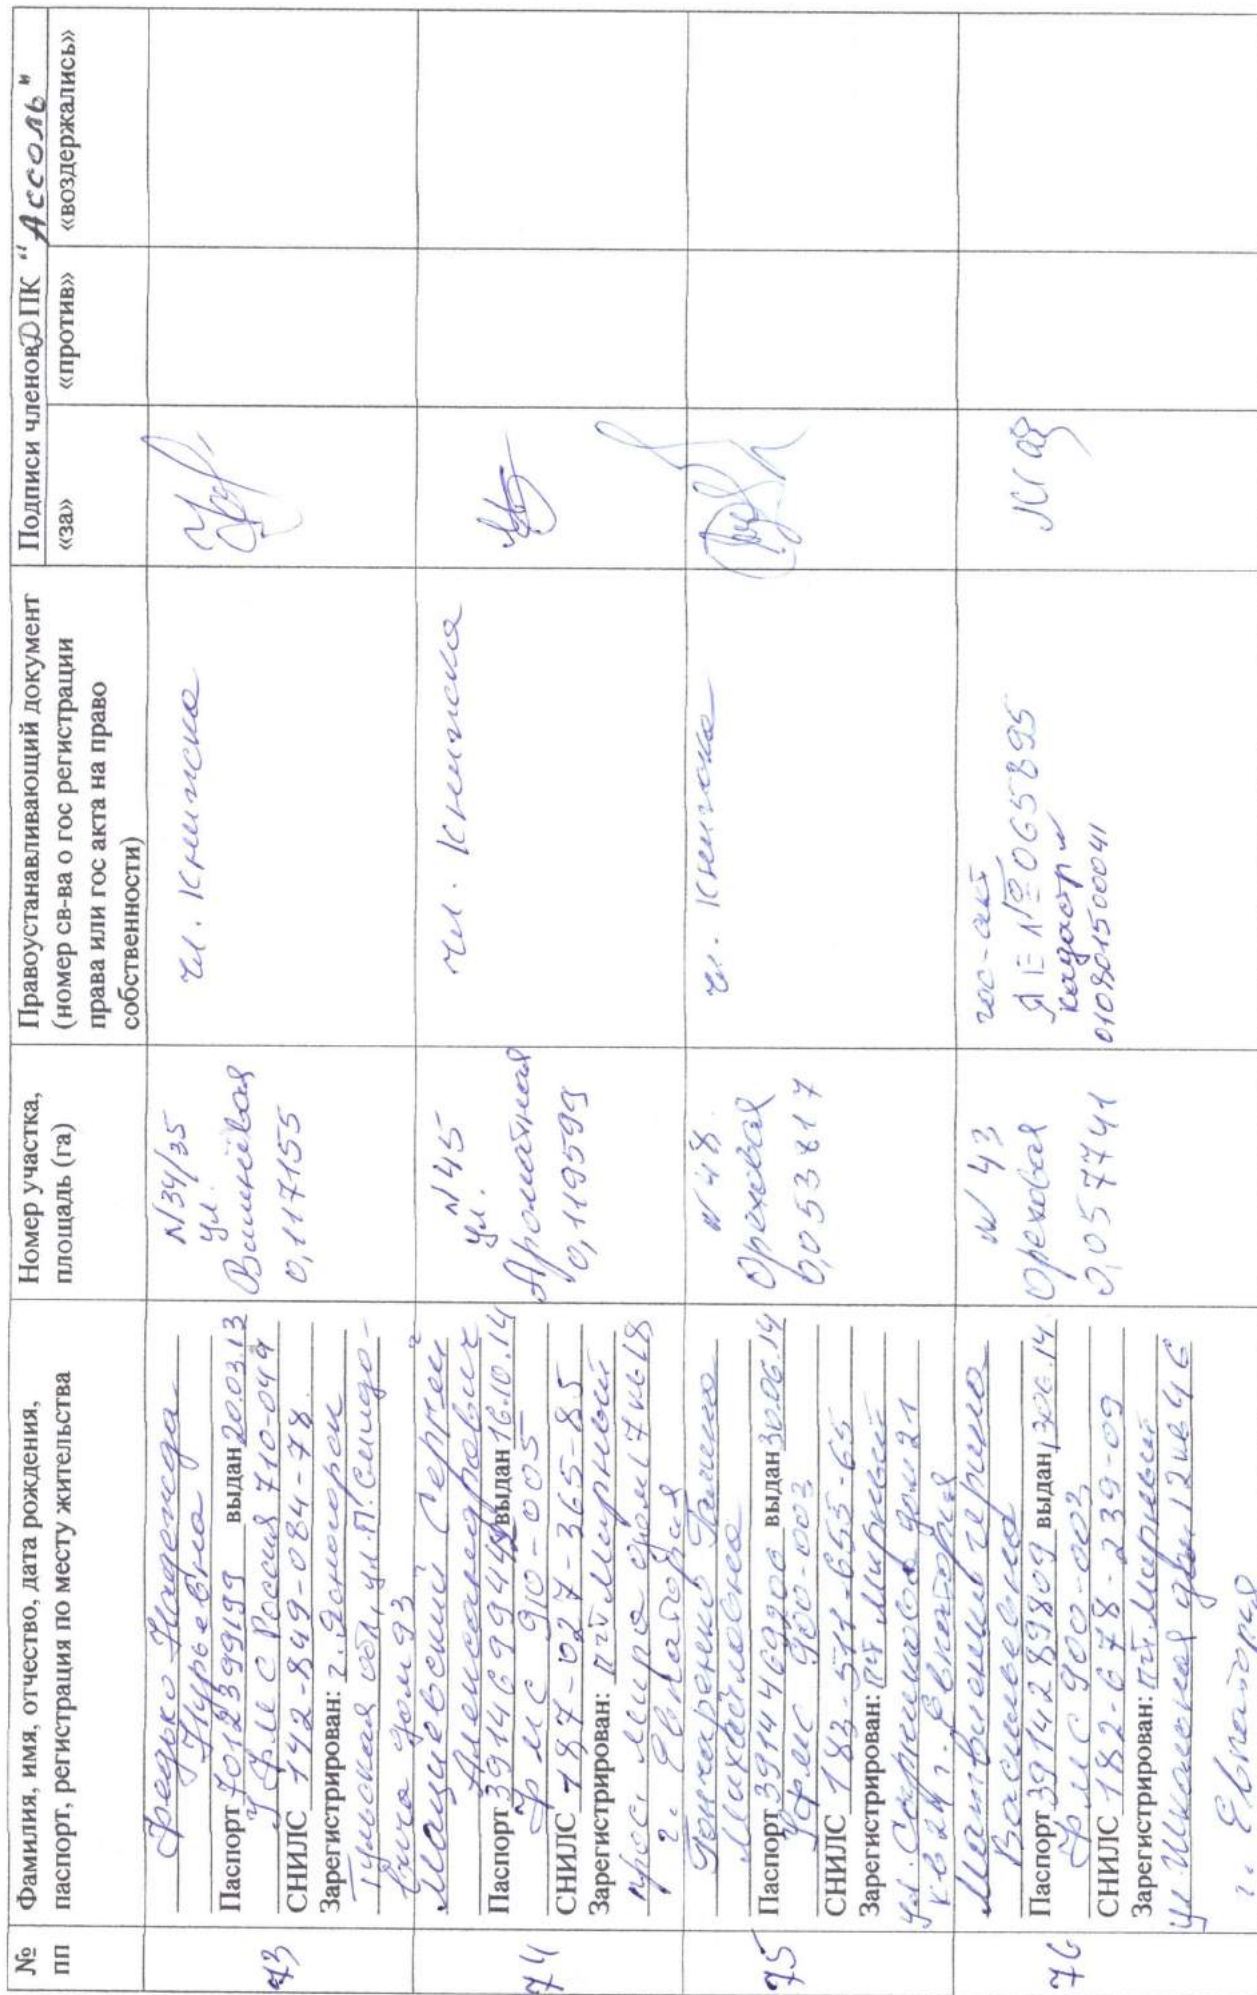 № пп
Фамилия, имя, отчество, дата рождения,
паспорт, регистрация по месту жительства
Номер участка,
площадь (га)
Правоустанавливающий документ
(номер св-ва о гос регистрации
права или гос акта на право
собственности)
Подписи членов ДПК "Ассоль"
«за»
«против»
«воздержались»
73
Федько Надежда
Юрьевна
Паспорт 7012399199 выдан 20.03.13
Уфмс Россия 710-049
СНИЛС 142-849-084-78
Зарегистрирован: г. Ясногорск
Тульская обл, ул. П. Смидо-
вича дом 93
N34/35
ул.
Вишнёвая
0,117155
чл. Книжка
74
Мациевский Сергей
Александрович
Паспорт выдан 16.10.14
Фмс 910-005
СНИЛС 187-027-365-85
Зарегистрирован: пгт Мирный
просп. мира дом 17 кв 68
г. Евпатория
N45
ул.
Ароматная
0,119599
чл. Книжка
75
Гончаренко Галина
Михайловна
Паспорт 3914469900 выдан 30.06.14
Уфмс 900-003
СНИЛС 183-511-655-65
Зарегистрирован: пгт Мирный
ул. дом 21
кв 24 г. Евпатория
N 48
Ореховая
чл. Книжка
76
Васильевна
Паспорт 3914289809 выдан 1306.14
Фмс 900-002
СНИЛС 182-678-239-09
Зарегистрирован: пгт. Мирный
ул. Школьная дом 12 кв 46
г. Евпатория
N 43
Ореховая
0,057741
гос-акт
ЯЕ №065895
кадастр
010801500041